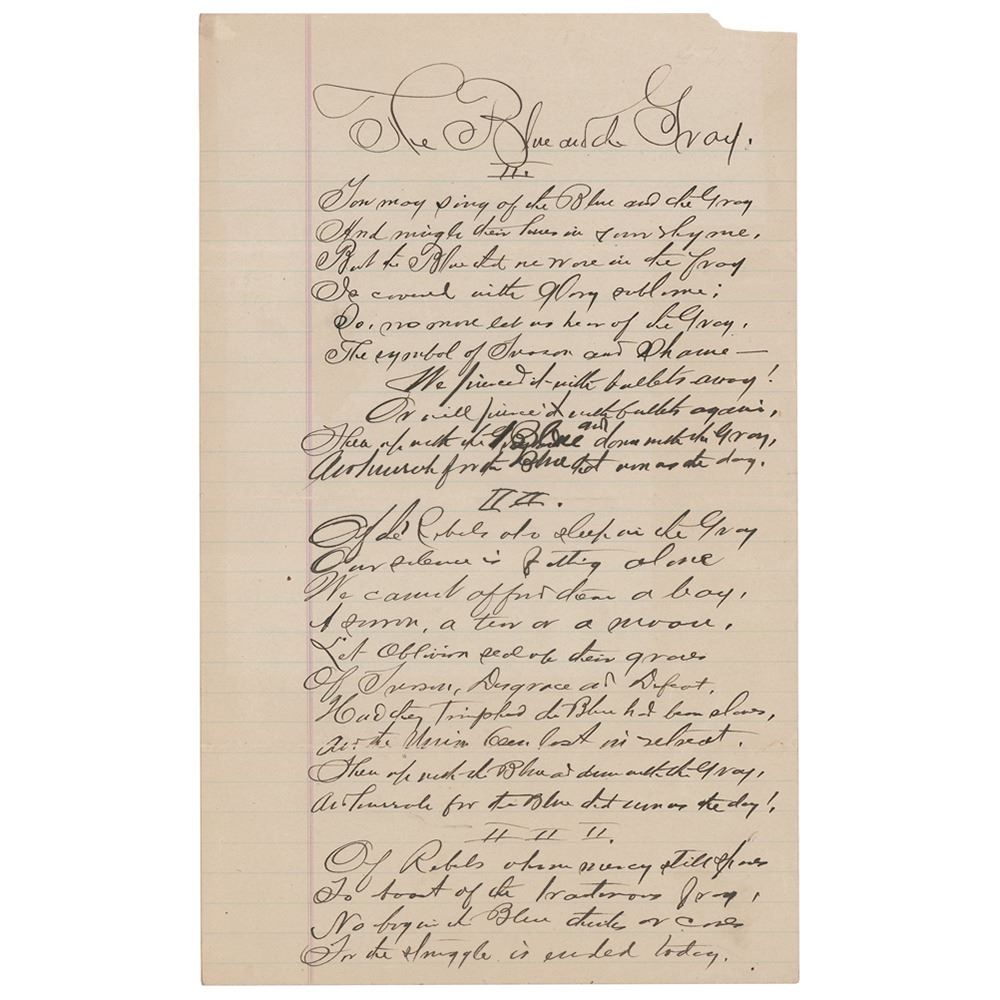 The Blue and the Gray.
II.
You may sing of the Blue and the Gray
And mingle their hues in your rhyme,
But the Blue that we wore in the fray
Is covered with glory sublime;
So, no more let us hear of the Gray,
The symbol of Treason and Shame—
We pierced it with bullets away!
Or will pierce it with bullets again,
Then up with the Blue and down with the Gray,
And hurrah for the Blue that won us the day.
II.
Of the Rebels who sleep in the Gray
Our silence is fitting alone
We cannot afford them a bay,
A sorrow, a tear or a moan,
Let Oblivion seal up their graves
Of Treason, Disgrace and Defeat,
Had they triumphed the Blue had been slaves,
And the Union been lost in retreat.
Then up with the Blue and down with the Gray,
And hurrah for the Blue that won us the day!
III.
Of Rebels whom mercy still spares
To boast of the traitorous fray,
No boy in the Blue thinks or cares
For the struggle is ended today.